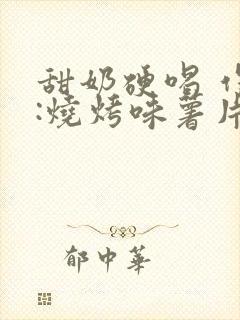 甜奶硬唱
:燒烤味薯片
郁中華